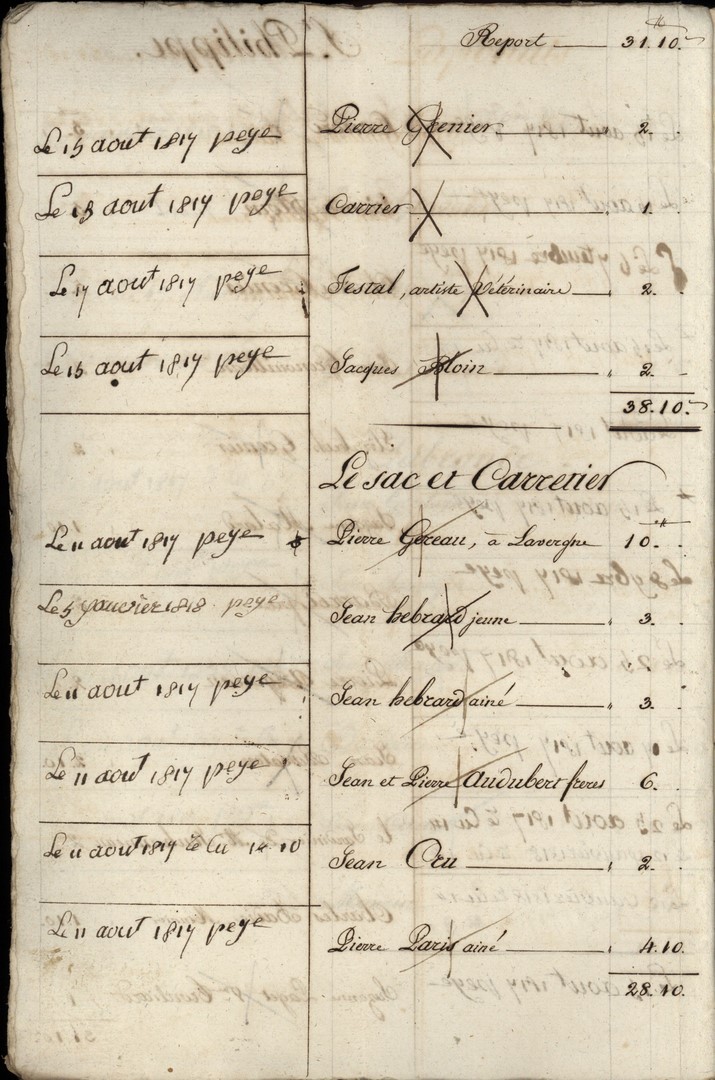 Report 31.10.
Le 15 aout 1817 peye Pierre Grenier 2.
Le 15 aout 1817 peye Carrier 1.
Le 17 aout 1817 peye Festal, artiste Vétérinaire 2.
Le 15 aout 1817 peye Jacques Bloin 2.
38.10.
Le sac et Carretier
Le 11 aout 1817 peye Pierre Goreau, à Lavergne 10.
Le 5 janvier 1818 peye Jean hebrard jeune 3.
Le 11 aout 1817 peye Jean hebrard ainé 3.
Le 11 aout 1817 peye Jean et Pierre Audubert freres 6.
Le 11 aout 1817 Jean Cru 2.
Le 11 aout 1817 peye Pierre Paris ainé 4.10.
28.10.